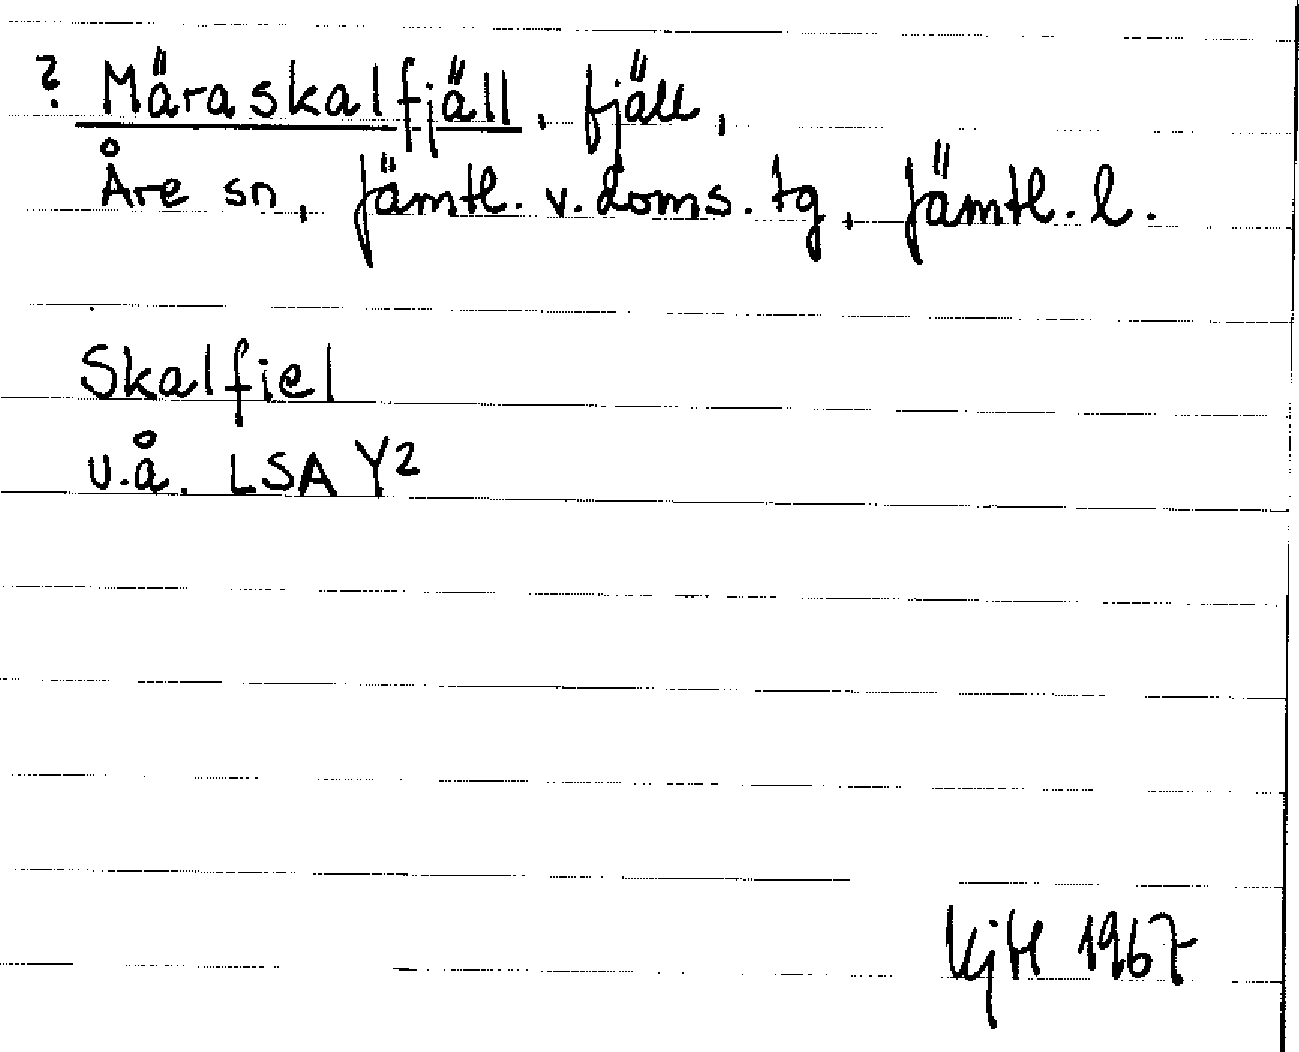 ? Märaskalfjäll, fjäll,
Åre sn, Jämtl. v. doms. tg, Jämtl. l.
Skalfiel
u.å. LSA Y2
1967